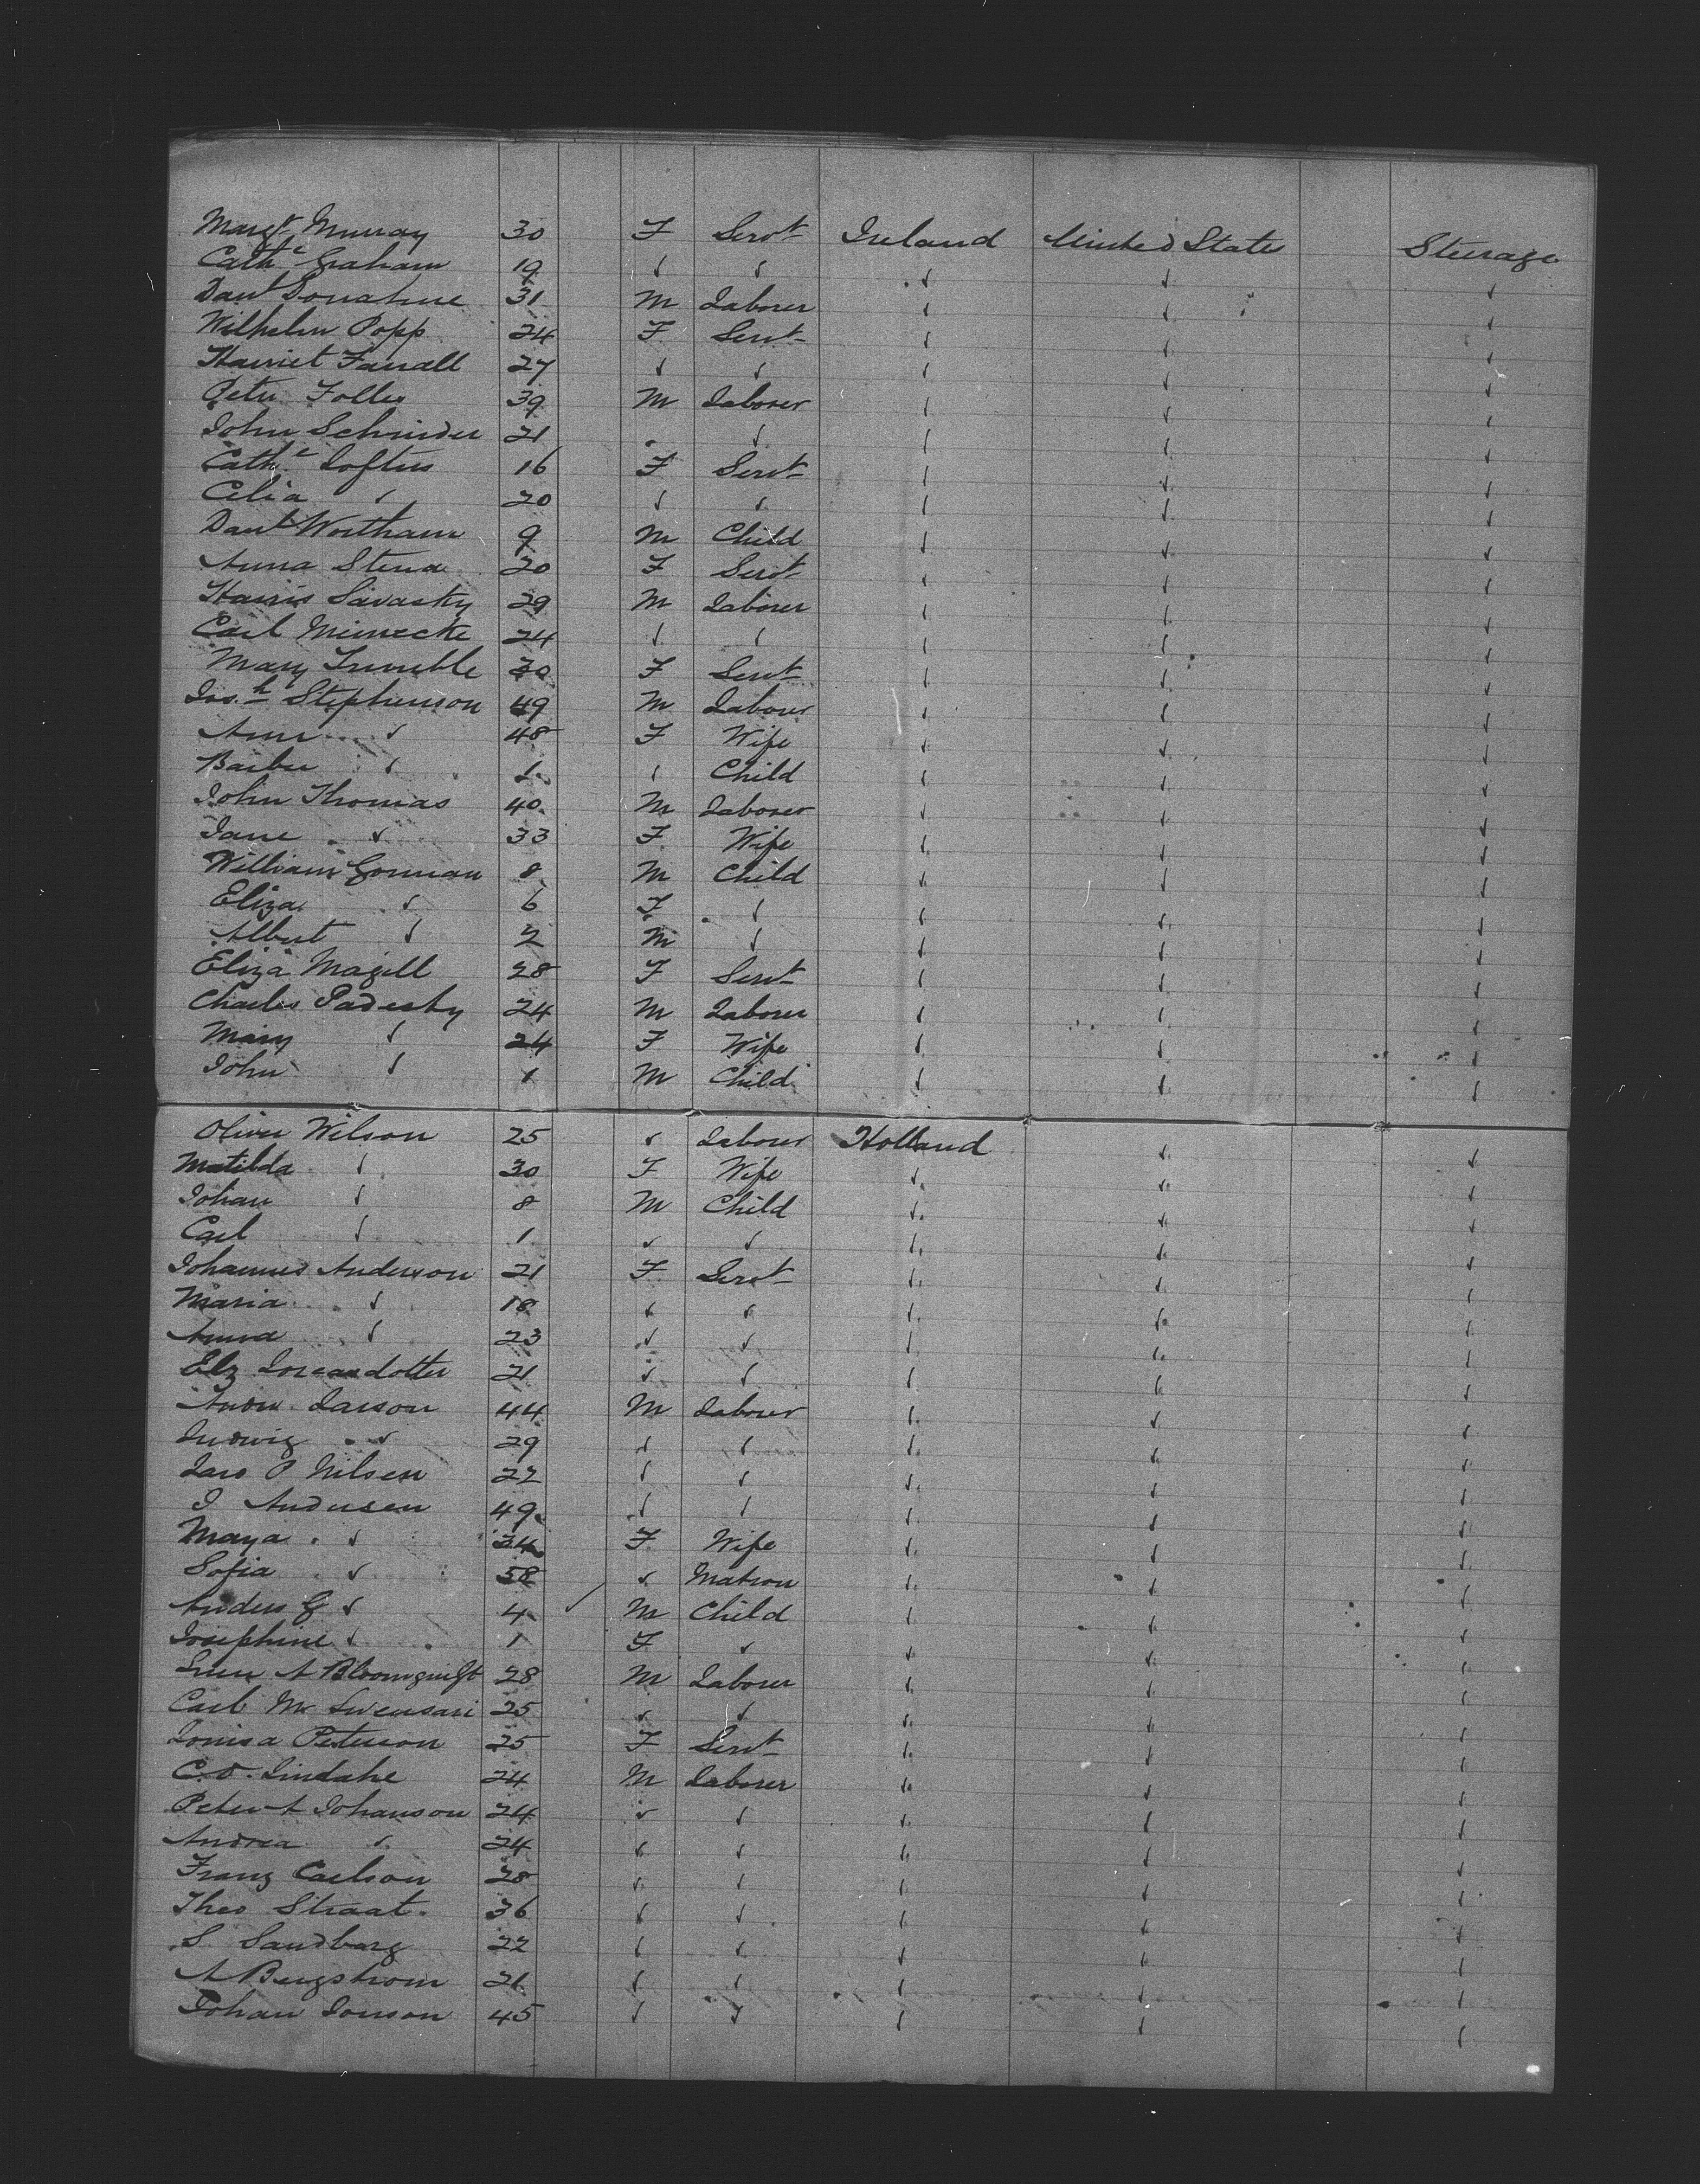 Margt Murray 30 F Servt Ireland United States Steerage
Cathe Graham 19 ✓ ✓ ✓ ✓ ✓
Danl Donahue 31 M Laborer ✓ ✓ ✓
Wilhelm Popp 24 F Servt ✓ ✓ ✓
Harriet Farrall 27 ✓ ✓ ✓ ✓ ✓
Peter 39 M Laborer ✓ ✓ ✓
John Schnider 21 ✓ ✓ ✓ ✓
Cathe Loftus 16 F Servt ✓ ✓ ✓
Celia ✓ 20 ✓ ✓ ✓ ✓ ✓
Danl Wortham 9 M Child ✓ ✓ ✓
Anna Stena 20 F Servt ✓ ✓ ✓
Harris 29 M Laborer ✓ ✓ ✓
Carl Meinecke 24 ✓ ✓ ✓ ✓ ✓
Mary Trimble 30 F Servt ✓ ✓ ✓
Josh Stephenson 49 M Laborer ✓ ✓ ✓
Ann ✓ 48 F Wife ✓ ✓ ✓
Barber ✓ 1 ✓ Child ✓ ✓ ✓
John Thomas 40 M Laborer ✓ ✓ ✓
Jane ✓ 33 F Wife ✓ ✓ ✓
William Gorman 8 M Child ✓ ✓ ✓
Eliza ✓ 6 F ✓ ✓ ✓ ✓
Albert ✓ 2 M ✓ ✓ ✓ ✓
Eliza Magill 28 F Servt ✓ ✓ ✓
Charles Padesky 24 M Laborer ✓ ✓ ✓
Mary ✓ 24 F Wife ✓ ✓ ✓
John ✓ 1 M Child ✓ ✓ ✓
Oliver Wilson 25 ✓ Laborer Holland ✓ ✓
Matilda ✓ 30 F Wife ✓ ✓ ✓
Johan ✓ 8 M Child ✓ ✓ ✓
Carl ✓ 1 ✓ ✓ ✓ ✓ ✓
Johannes Anderson 21 F Servt ✓ ✓ ✓
Maria ✓ 18 ✓ ✓ ✓ ✓ ✓
Anna ✓ 23 ✓ ✓ ✓ ✓ ✓
Elz 21 ✓ ✓ ✓ ✓ ✓
Andw Larson 44 M Laborer ✓ ✓ ✓
Ludwig ✓ 29 ✓ ✓ ✓ ✓ ✓
Lars P Nilsen 22 ✓ ✓ ✓ ✓ ✓
J Andersen 49 ✓ ✓ ✓ ✓ ✓
Maya ✓ 34 F Wife ✓ ✓ ✓
Sofia ✓ 58 ✓ Matron ✓ ✓ ✓
Anders G ✓ 4 ✓ M Child ✓ ✓ ✓
Josephine ✓ 1 F ✓ ✓ ✓ ✓
A Bloomquist 28 M Laborer ✓ ✓ ✓
Carl M Swensen 25 ✓ ✓ ✓ ✓ ✓
Louisa Peterson 25 F Servt ✓ ✓ ✓
C.O. Lindahe 24 M Laborer ✓ ✓ ✓
Peter A Johanson 24 ✓ ✓ ✓ ✓ ✓
Andrea ✓ 24 ✓ ✓ ✓ ✓ ✓
Franz Carlson 28 ✓ ✓ ✓ ✓ ✓
Theo Straat 36 ✓ ✓ ✓ ✓ ✓
S Sandberg 22 ✓ ✓ ✓ ✓ ✓
A Bergstrom 21 ✓ ✓ ✓ ✓ ✓
Johan Jonson 45 ✓ ✓ ✓ ✓ ✓